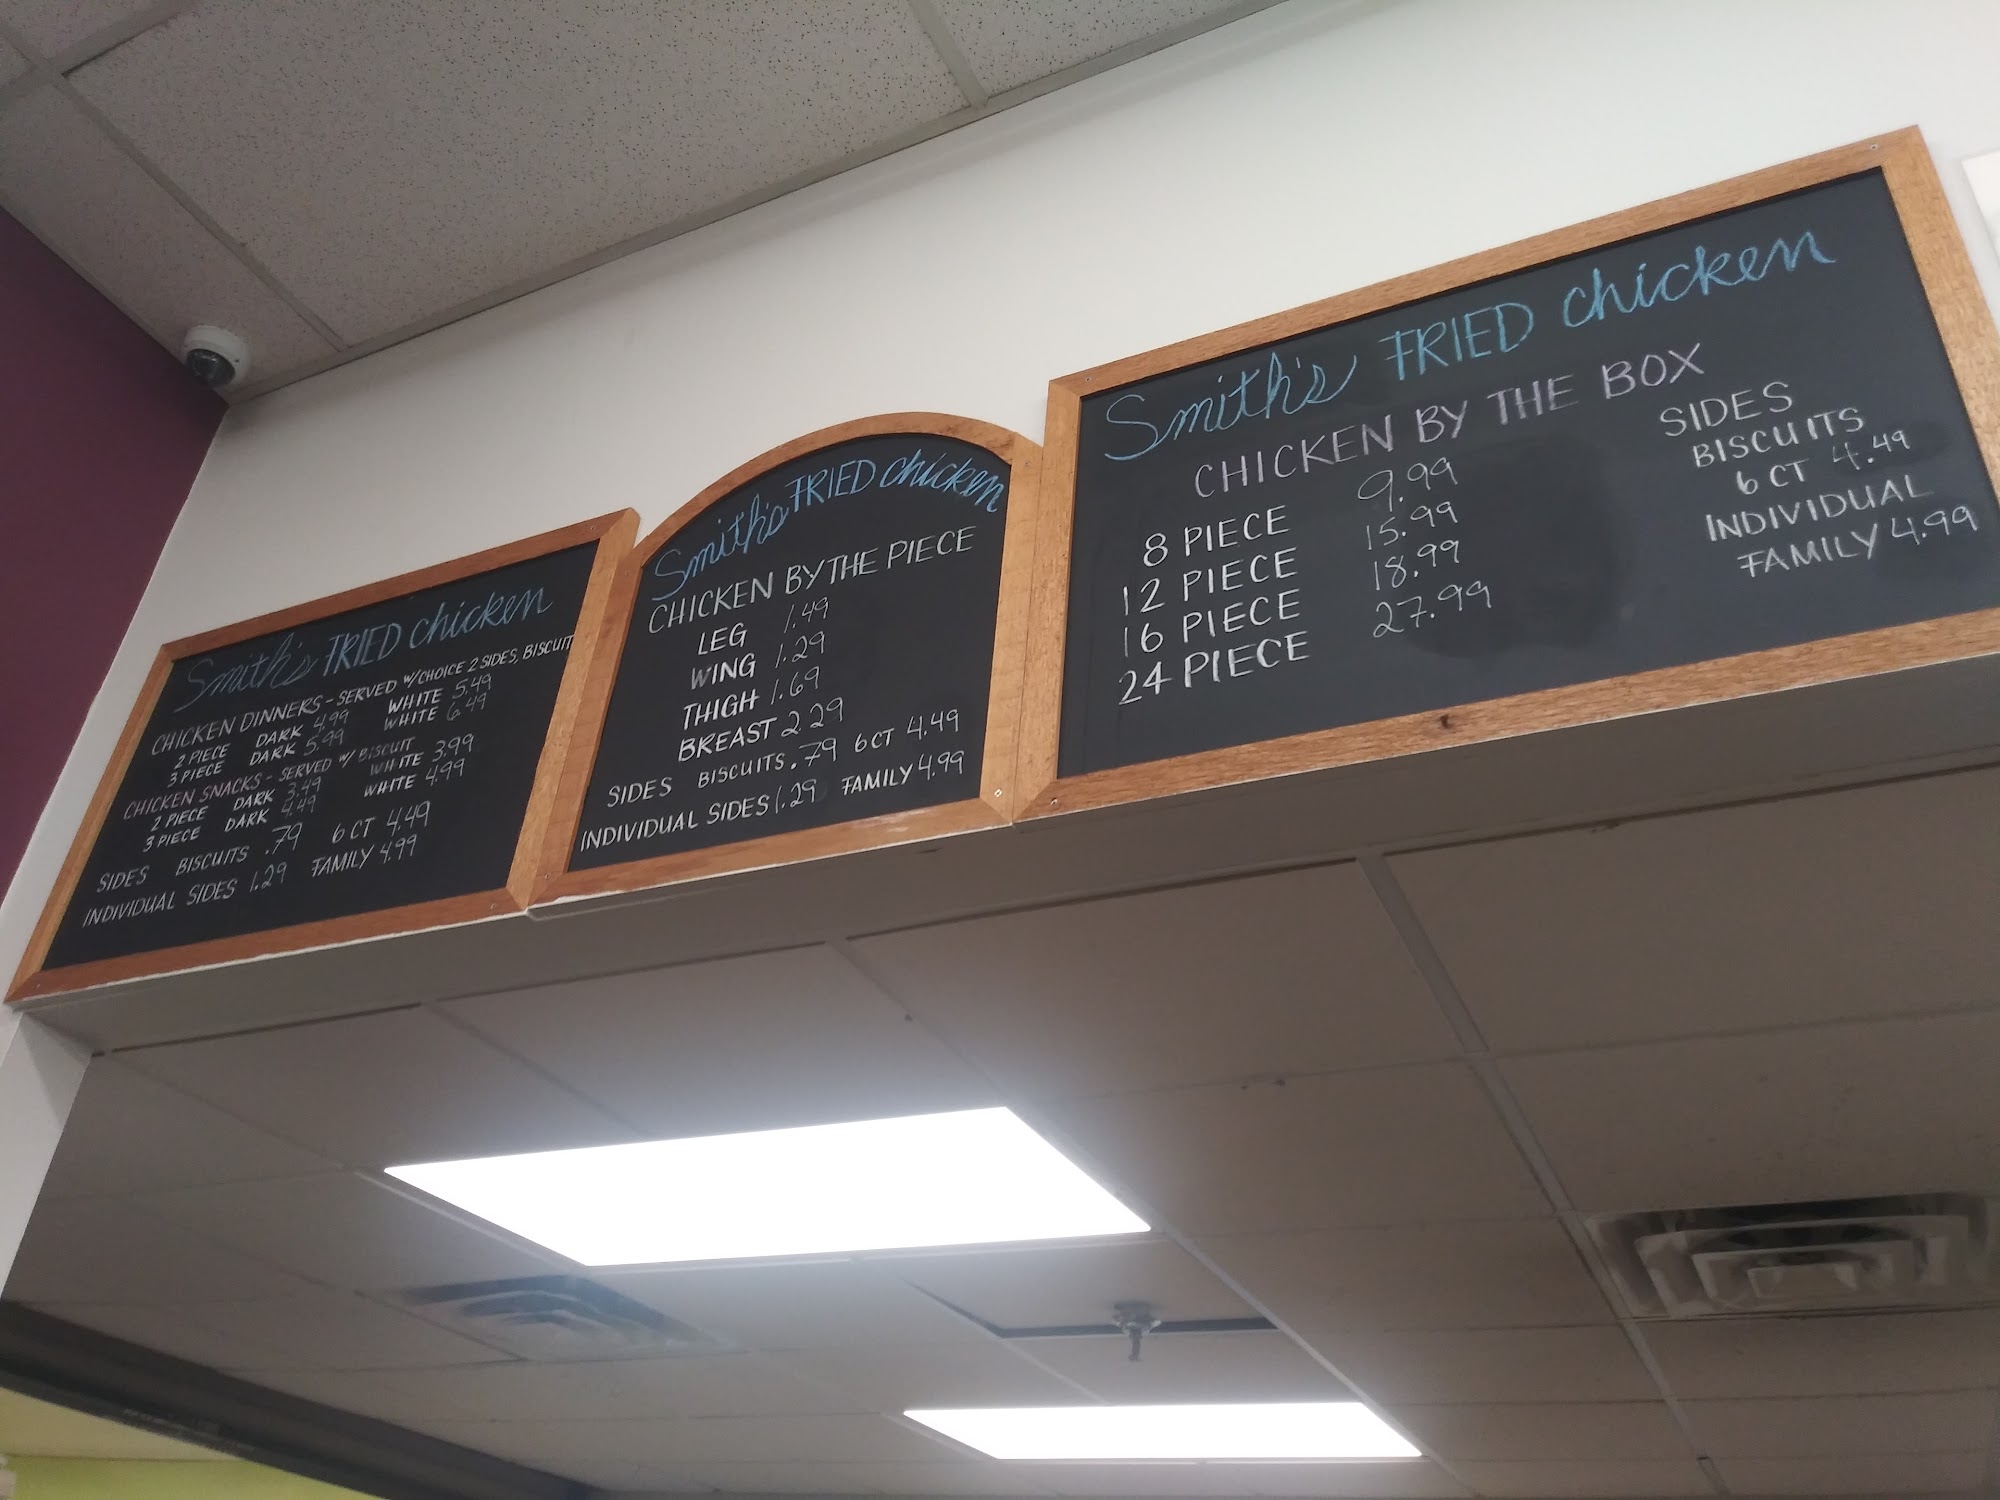 Smith's FRIED chicken
CHICKEN DINNERS - SERVED W/CHOICE 2 SIDES, BISCUIT
2 PIECE DARK 4.99 WHITE 5.49
3 PIECE DARK 5.99 WHITE 6.49
CHICKEN SNACKS - SERVED W/ BISCUIT
2 PIECE DARK 3.49 WHITE 3.99
3 PIECE DARK 4.49 WHITE 4.99
SIDES BISCUITS .79 6 CT 4.49
INDIVIDUAL SIDES 1.29 FAMILY 4.99
Smith's FRIED chicken
CHICKEN BY THE PIECE
LEG 1.49
WING 1.29
THIGH 1.69
BREAST 2.29
SIDES BISCUITS .79 6 CT 4.49
INDIVIDUAL SIDES 1.29 FAMILY 4.99
Smith's FRIED chicken
CHICKEN BY THE BOX
8 PIECE 9.99
12 PIECE 15.99
16 PIECE 18.99
24 PIECE 27.99
SIDES
BISCUITS
6 CT 4.49
INDIVIDUAL
FAMILY 4.99